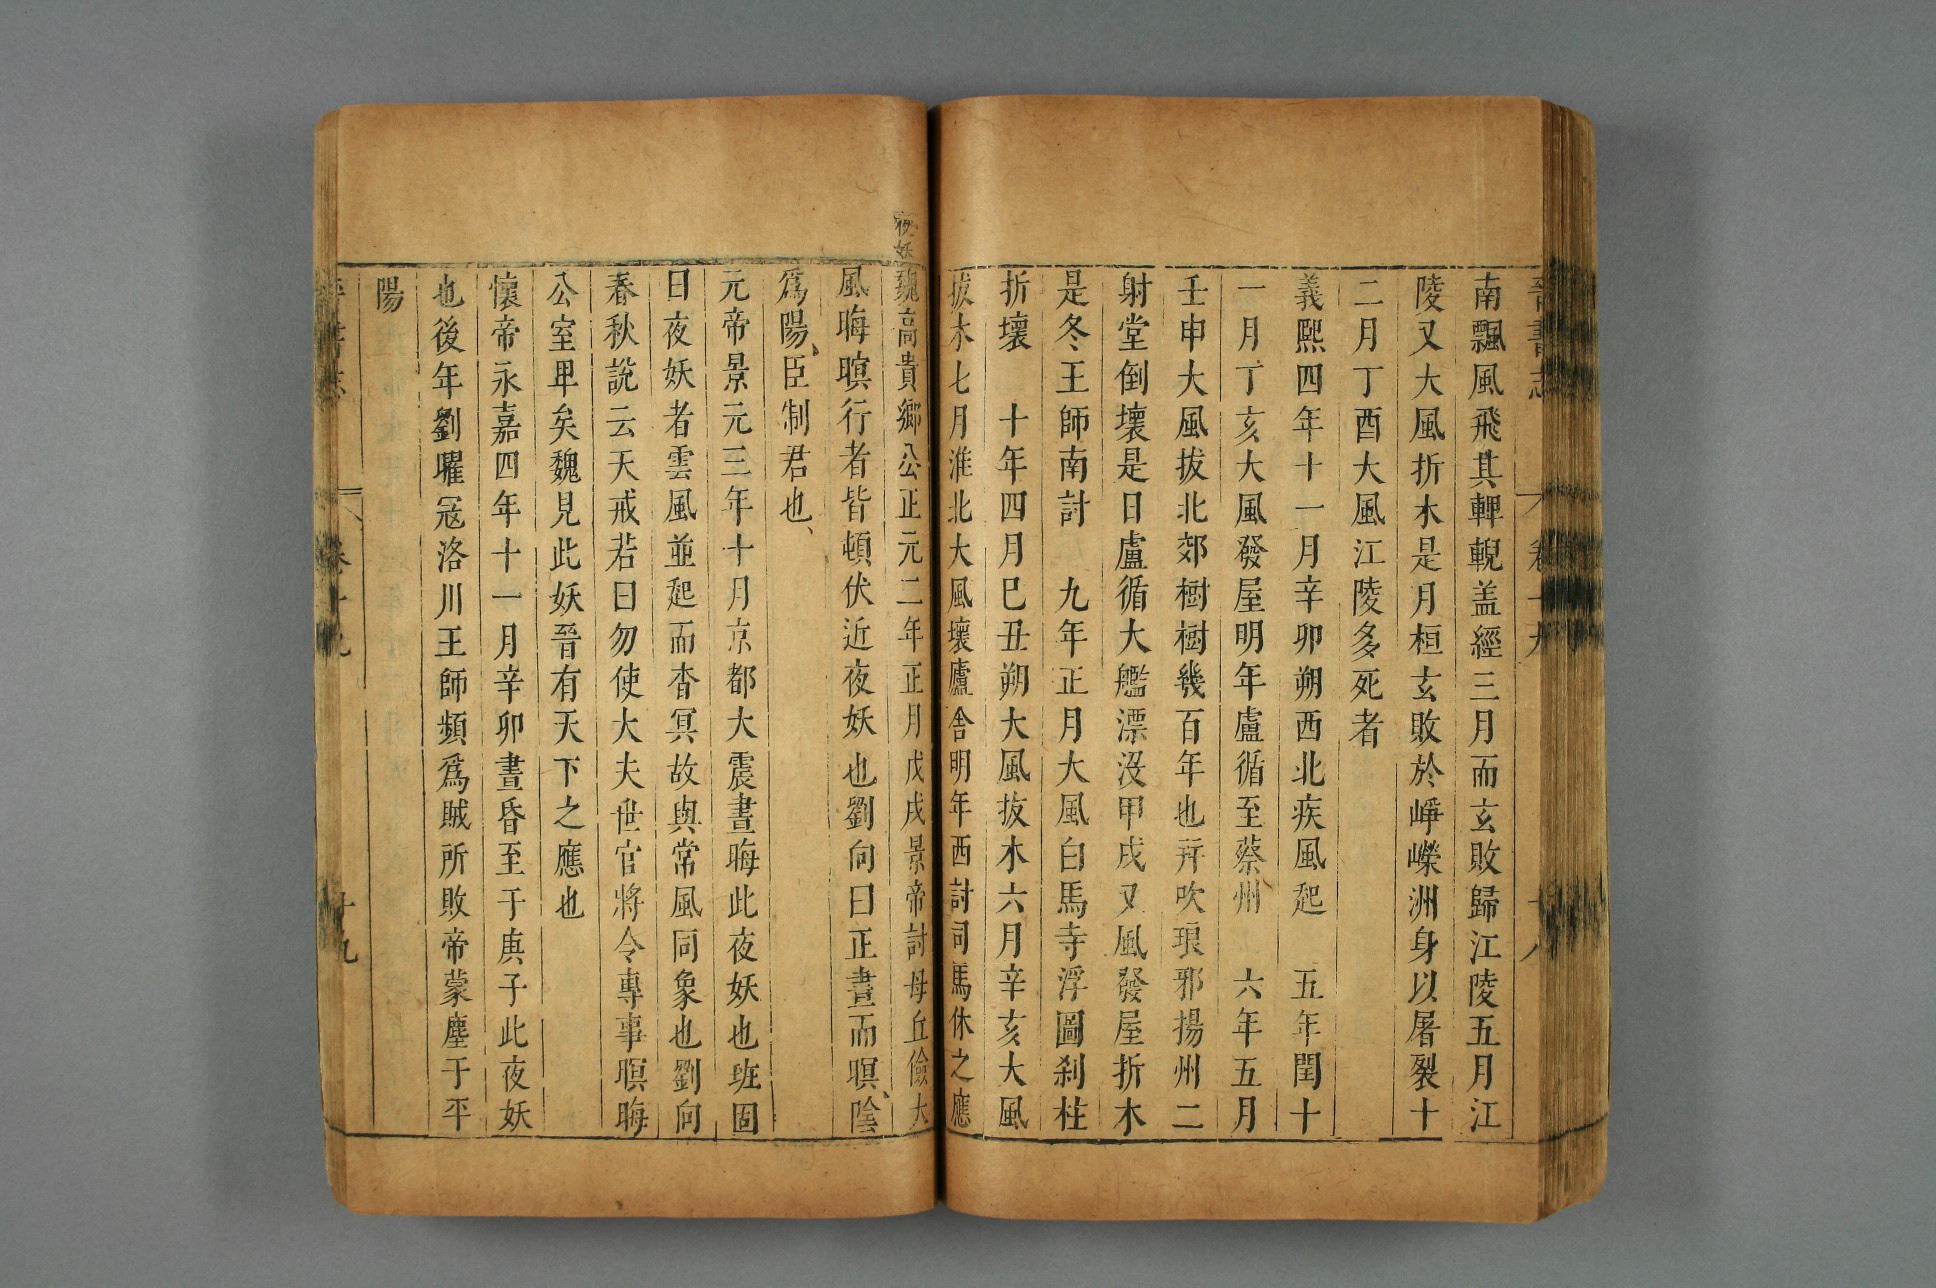 晉書志 卷十九 十八
南飄風飛其輧輗盖經三月而玄敗歸江陵五月江
陵又大風折木是月桓玄敗於崢嶸洲身以屠裂十
二月丁酉大風江陵多死者
義熙四年十一月辛卯朔西北疾風起 五年閏十
一月丁亥大風發屋明年盧循至蔡州 六年五月
壬申大風拔北郊樹樹幾百年也并吹琅邪揚州二
射堂倒壞是日盧循大艦漂沒甲戌又風發屋折木
是冬王師南討 九年正月大風白馬寺浮圖刹柱
折壞 十年四月巳丑朔大風拔木六月辛亥大風
拔木七月淮北大風壞廬舍明年西討司馬休之應
夜妖
魏高貴鄉公正元二年正月戊戌景帝討母丘儉大
風晦暝行者皆頓伏近夜妖也劉向曰正晝而暝陰
爲陽臣制君也
元帝景元三年十月京都大震晝晦此夜妖也班固
曰夜妖者雲風並起而杳冥故與常風同象也劉向
春秋說云天戒若曰勿使大夫世官將令專事暝晦
公室卑矣魏見此妖晉有天下之應也
懷帝永嘉四年十一月辛卯晝昏至于庚子此夜妖
也後年劉曜寇洛川王師頻爲賊所敗帝蒙塵于平
陽
卷十九 十九